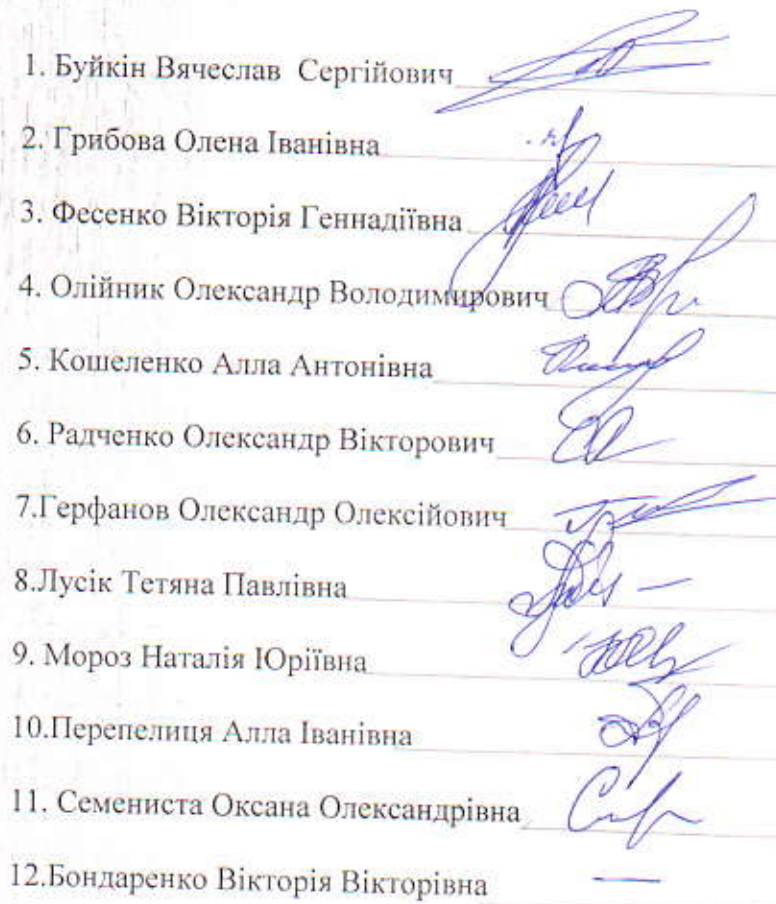 1. Буйкін Вячеслав Сергійович
2. Грибова Олена Іванівна
3. Фесенко Вікторія Геннадіївна
4. Олійник Олександр Володимирович
5. Кошеленко Алла Антонівна
6. Радченко Олександр Вікторович
7.Герфанов Олександр Олексійович
8.Лусік Тетяна Павлівна
9. Мороз Наталія Юріївна
10.Перепелиця Алла Іванівна
11. Семениста Оксана Олександрівна
12.Бондаренко Вікторія Вікторівна —